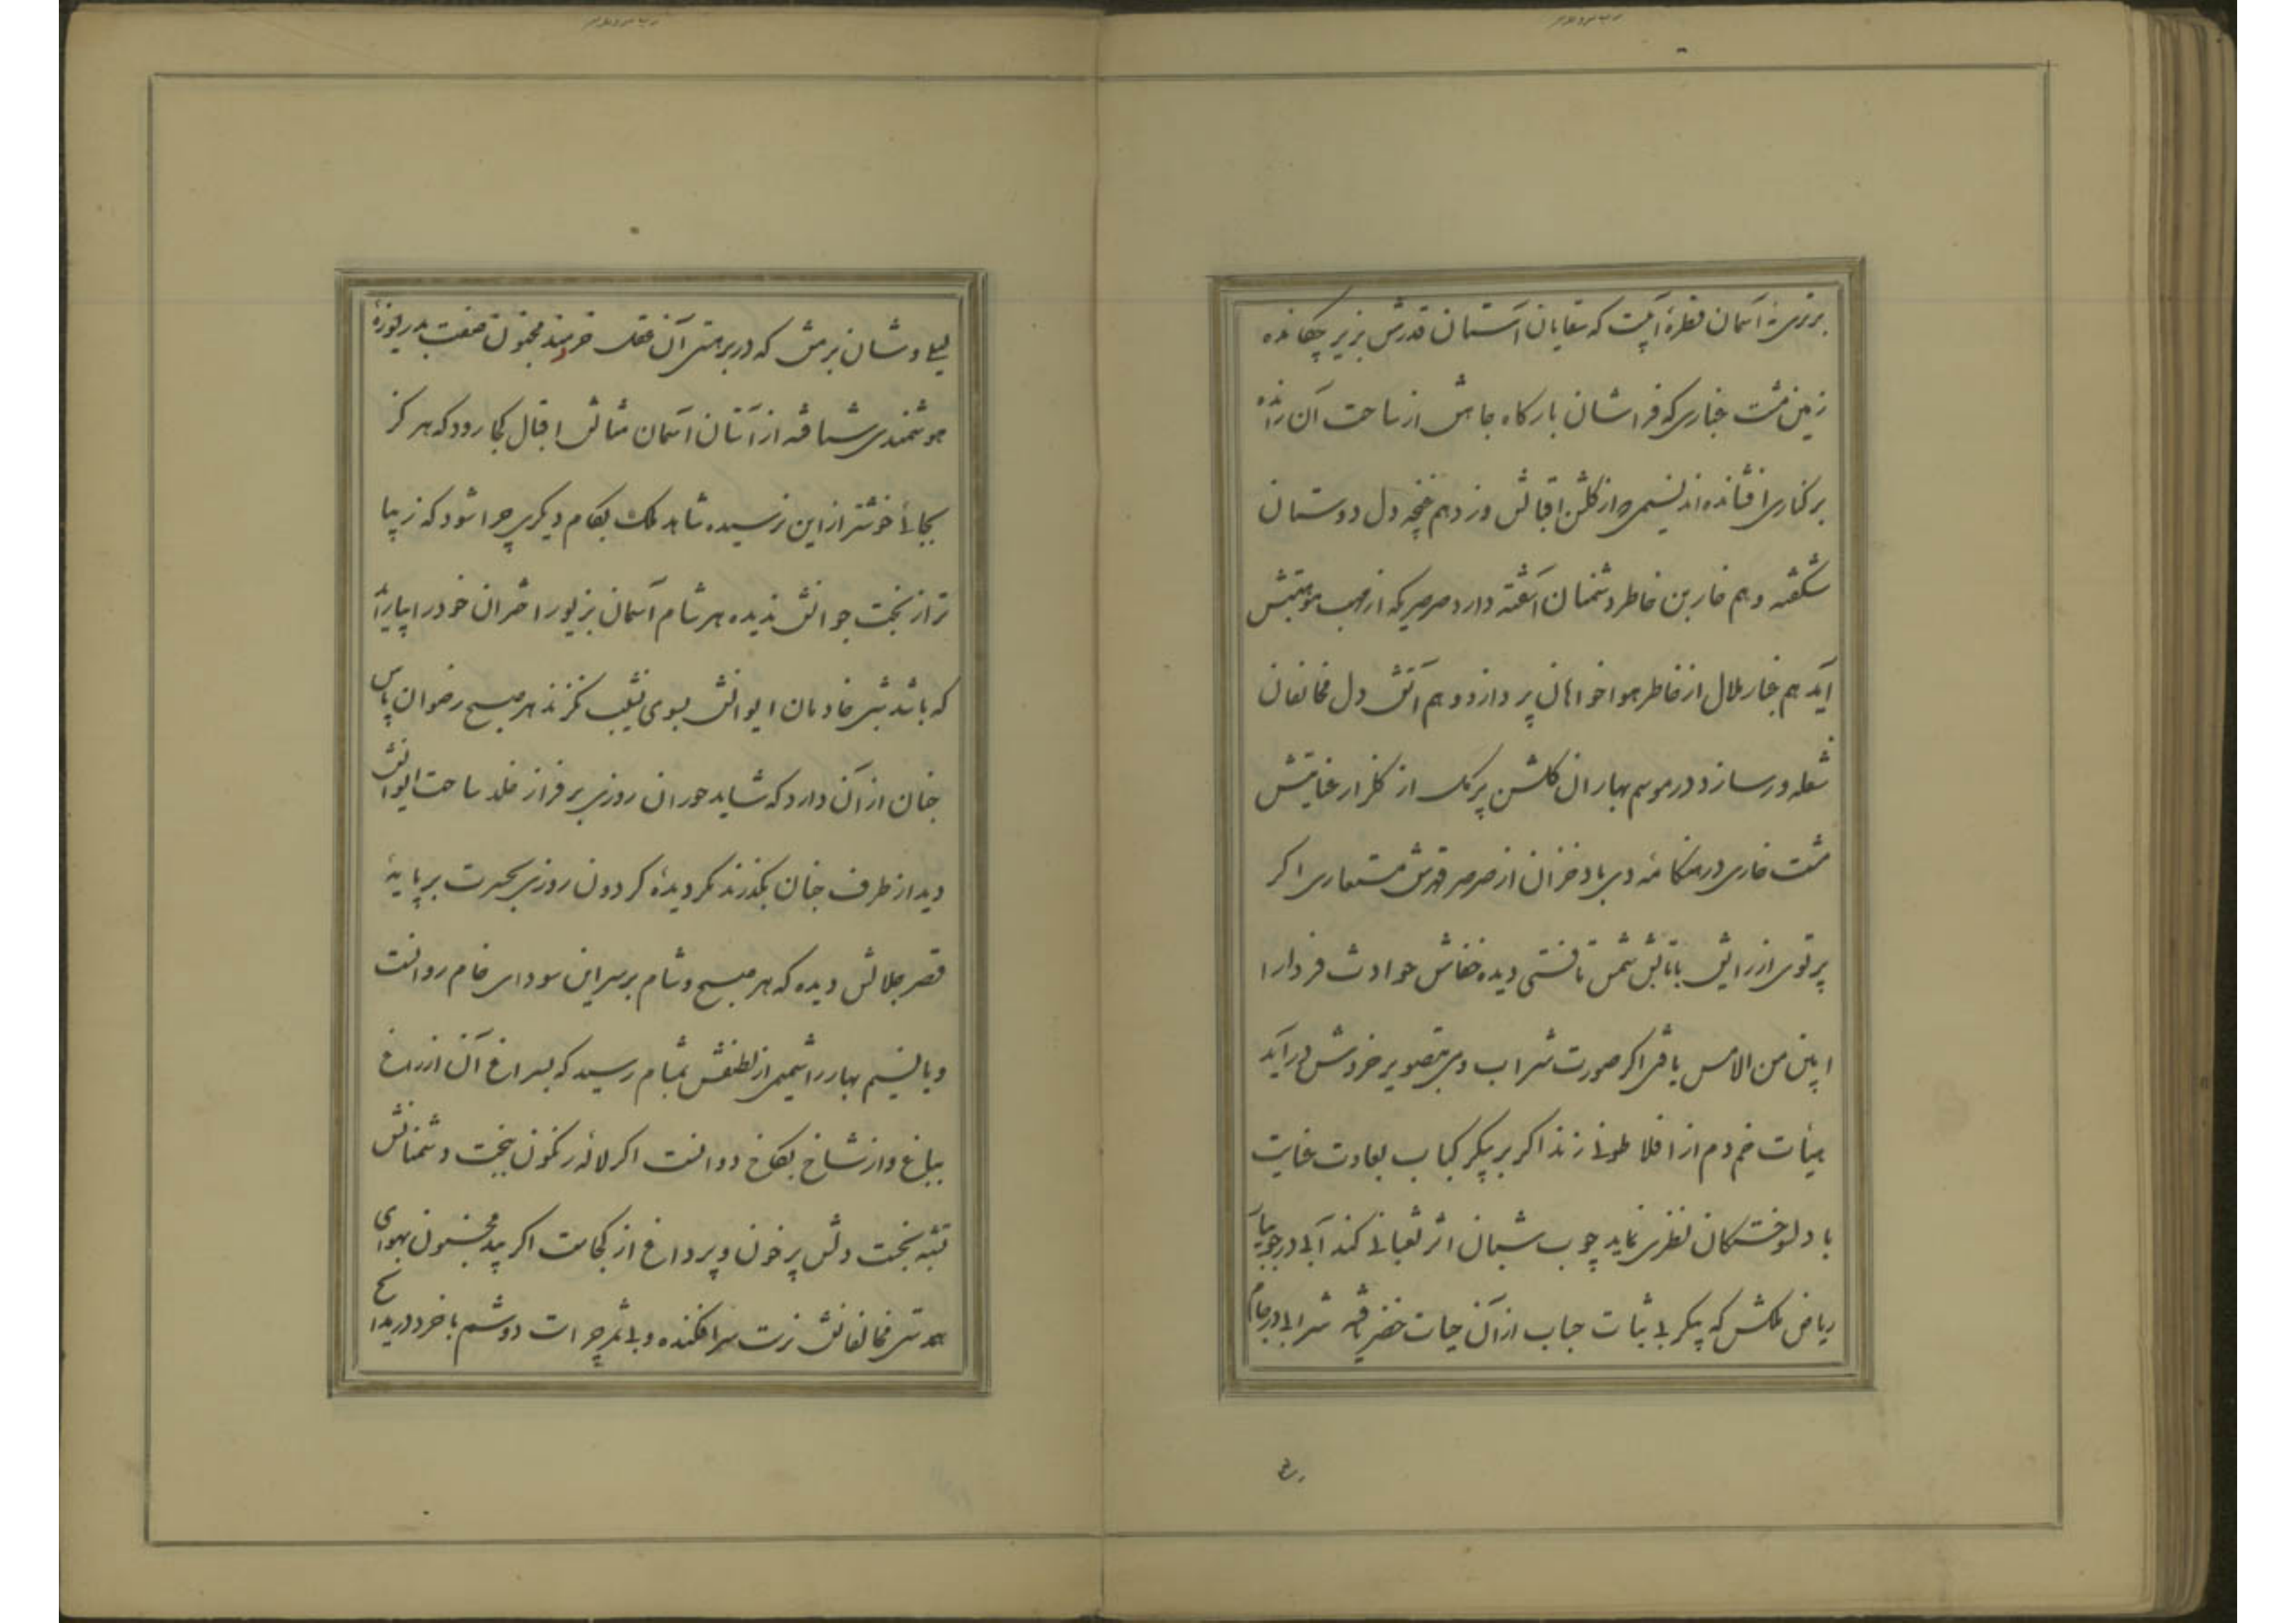 زمین مشت غباری که فراشان بارگاه جاهش از ساحت آن
بر کناری افشانده اند نسیمی که از گلشن اقبالش وزد هم غنچه دل دوستان
شکفته و هم خار بن خاطر دشمنان آشفته دارد صرصریکه از مهب
آید هم غبار ملال از خاطر هوا خواهان پردازد و هم آتش دل مخالفان
شعله ور سازد در موسم بهاران گلشن پر گل از گلزار عنایتش
مشت خاری در هنگامه دی باد خزان از صرصر قهرش مستعاری اگر
پرتوی از رایش با تابش شمس تافتی دیده خفاش حوادث فردا را
ابین من الامس یافتی اگر صورت شراب و می بتصویر خردش در آید
هیأت خم دم از افلاطونی زند اگر بر پیکر کباب بعادت عنایت
با دلسوختگان نظری نماید چوب شبان اثر ثعبانی کند آبی در جویبار
ریاض ملکش که پیکر بی ثبات حباب از آن حیات خضر یافته شرابی در جام
لیلی وشان بزمش که در بر مستی آن عقل خردمند مجنون صفت بدریوزۀ
هوشمندی شتافته از آستان آسمان مثالش اقبال کجا رود که هرگز
بجائی خوشتر از این نرسیده شاهد ملک بکام دیگری چرا شود که زیبا
تر از بخت جوانش ندیده هر شام آسمان بزیور اختران خود را
که باشد شبی خادمان ایوانش بسوی نشیب نگرند هر صبح رضوان پاس
جنان از آن دارد که شاید حوران روزی بر فراز خلد ساحت ایوانش
دید از طرف جنان بگذرند مگر دیدۀ گردون روزی بحسرت بر پایۀ
قصر جلالش دیده که هر صبح و شام بر سر این سودای خام روانست
و یا نسیم بهار را شمیمی از لطفش بمشام رسید که بسراغ آن از راغ
بباغ و از شاخ بکاخ دوانست اگر لاله رنگون ببخت دشمنانش
تشبه نجست دلش پر خون و پر داغ از کجاست اگر بید مجنون بهوای
همدستی مخالفانش نرست سرافکنده و بی ثمر چراست دوشم با خرد در